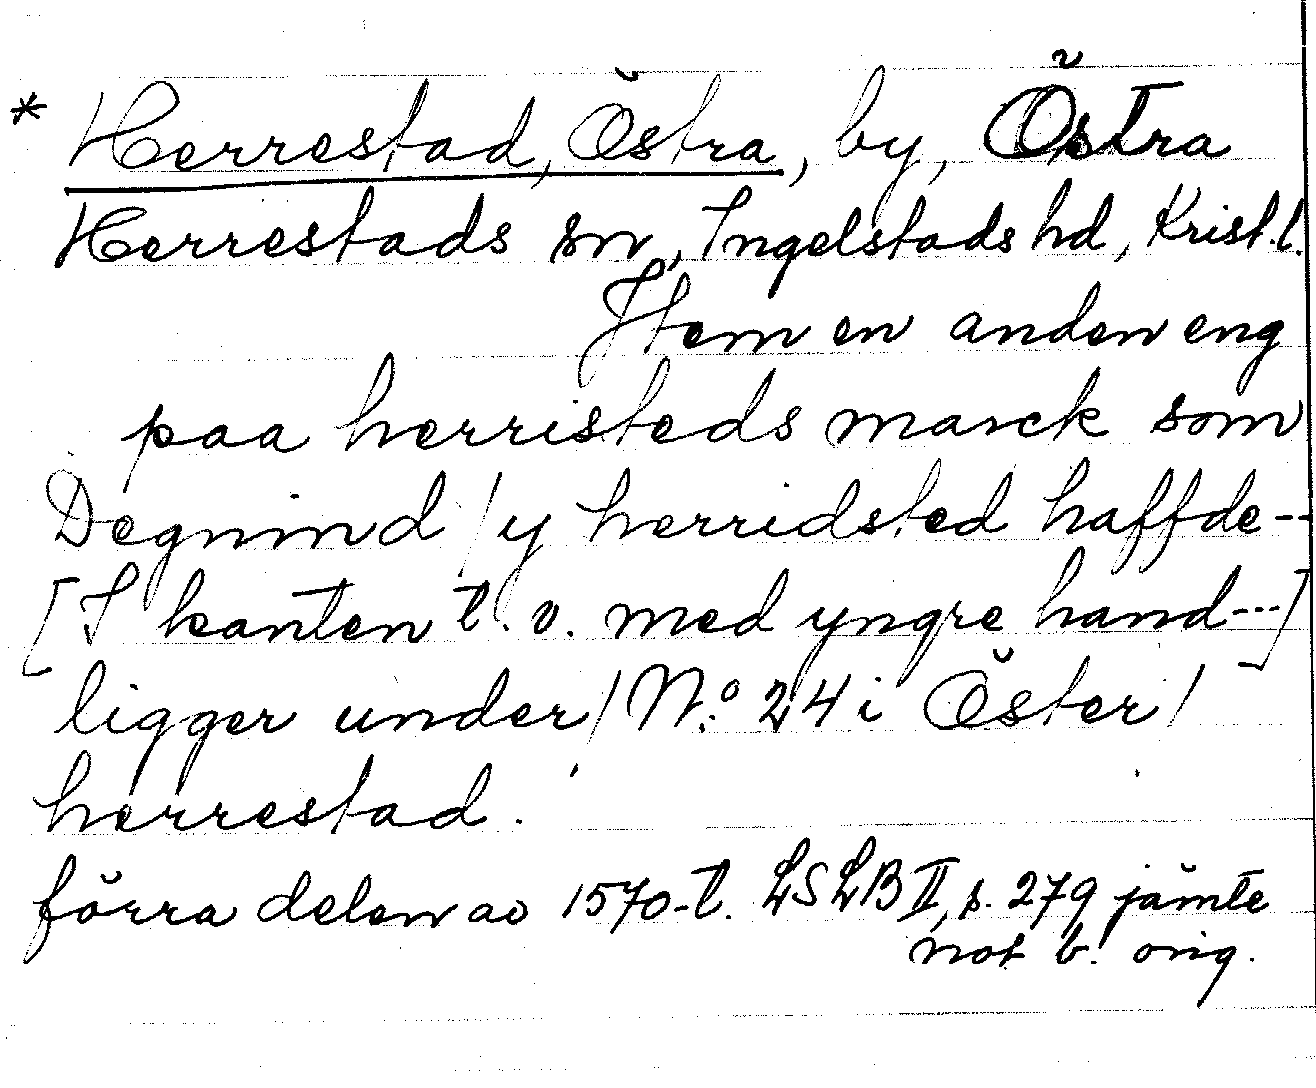 * Herrestad, Östra, by, Östra
Herrestads sn, Ingelstads hd, Krist. l.
Item en anden eng
paa herristeds marck som
Degnind / y herridsted haffde --
[I kanten t. v. med yngre hand ---]
ligger under / N:o 24 i Öster /
herrestad.
förra delen av 1570-t. LSLB II, s. 279 jämte
not b. orig.